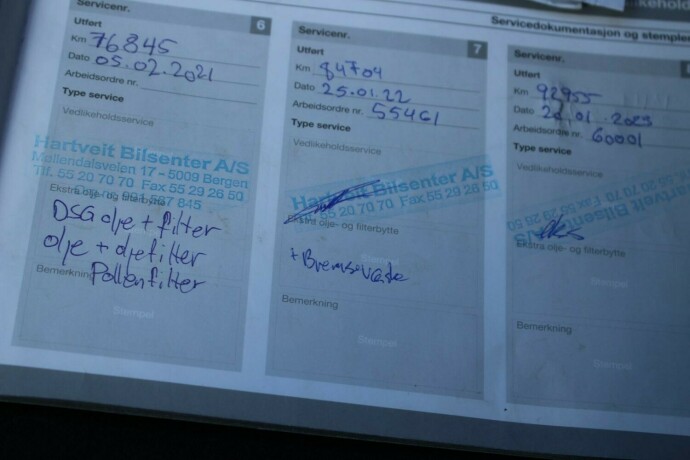 ikeholds
Servicedokumentasjon og stempler
Servicenr. 6
Utført
Km 76845
Dato 05.02.2021
Arbeidsordre nr.
Type service
Vedlikeholdsservice
Hartveit Bilsenter A/S
Møllendalsveien 17 - 5009 Bergen
Tlf. 55 20 70 70 Fax 55 29 26 50
845
Ekstra olje- og filterbytte
DSG olje + filter
olje + oljefilter
Pollenfilter
Bemerkning
Stempel
Servicenr. 7
Utført
Km 84704
Dato 25.01.22
Arbeidsordre nr. 55461
Type service
Vedlikeholdsservice
Hartveit Bilsenter A/S
55 20 70 70 Fax 55 29 26 50
Ekstra olje- og filterbytte
+ Bremsevæske
Bemerkning
Stempel
Servicenr.
Utført
Km 92955
Dato 01 2023
Arbeidsordre nr. 60001
Type service
Vedlikeholdsservice
Hartveit Bilsenter
Ekstra olje- og filterbytte
Bemerkning
Stempel